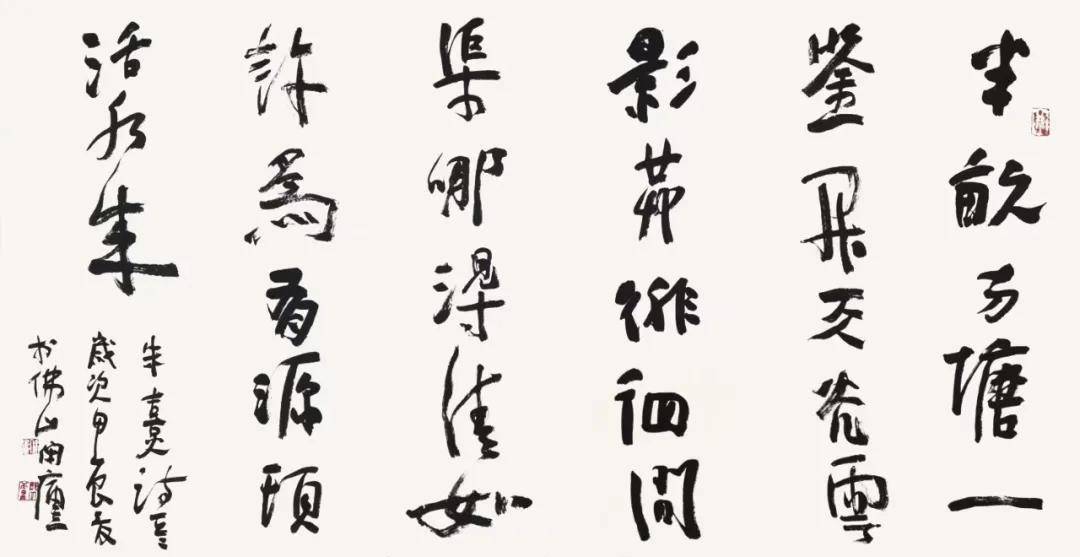 半畝方塘一
鑒開天光雲
影共徘徊問
渠哪得清如
許爲有源頭
活水來
朱熹詩
歲次甲辰夏
於佛山